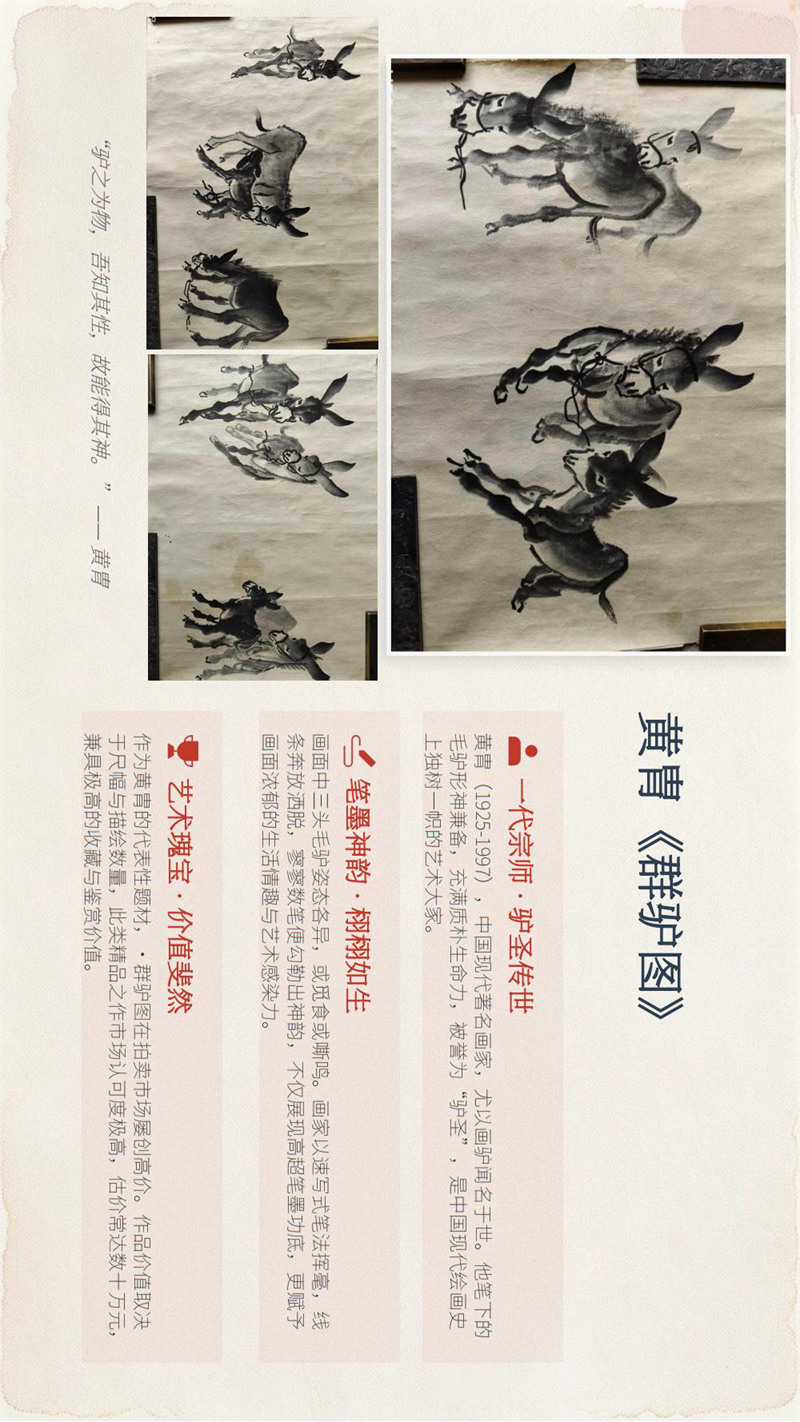 黄胄《群驴图》
一代宗师·驴圣传世
黄胄（1925-1997），中国现代著名画家，尤以画驴闻名于世。他笔下的
毛驴形神兼备，充满质朴生命力，被誉为“驴圣”，是中国现代绘画史
上独树一帜的艺术大家。
笔墨神韵·栩栩如生
画面中三头毛驴姿态各异，或觅食或嘶鸣。画家以速写式笔法挥毫，线
条奔放洒脱，寥寥数笔便勾勒出神韵，不仅展现高超笔墨功底，更赋予
画面浓郁的生活情趣与艺术感染力。
艺术瑰宝·价值斐然
作为黄胄的代表性题材，·群驴图在拍卖市场屡创高价。作品价值取决
于尺幅与描绘数量，此类精品之作市场认可度极高，估价常达数十万元，
兼具极高的收藏与鉴赏价值。
“驴之为物，吾知其性，故能得其神。”——黄胄